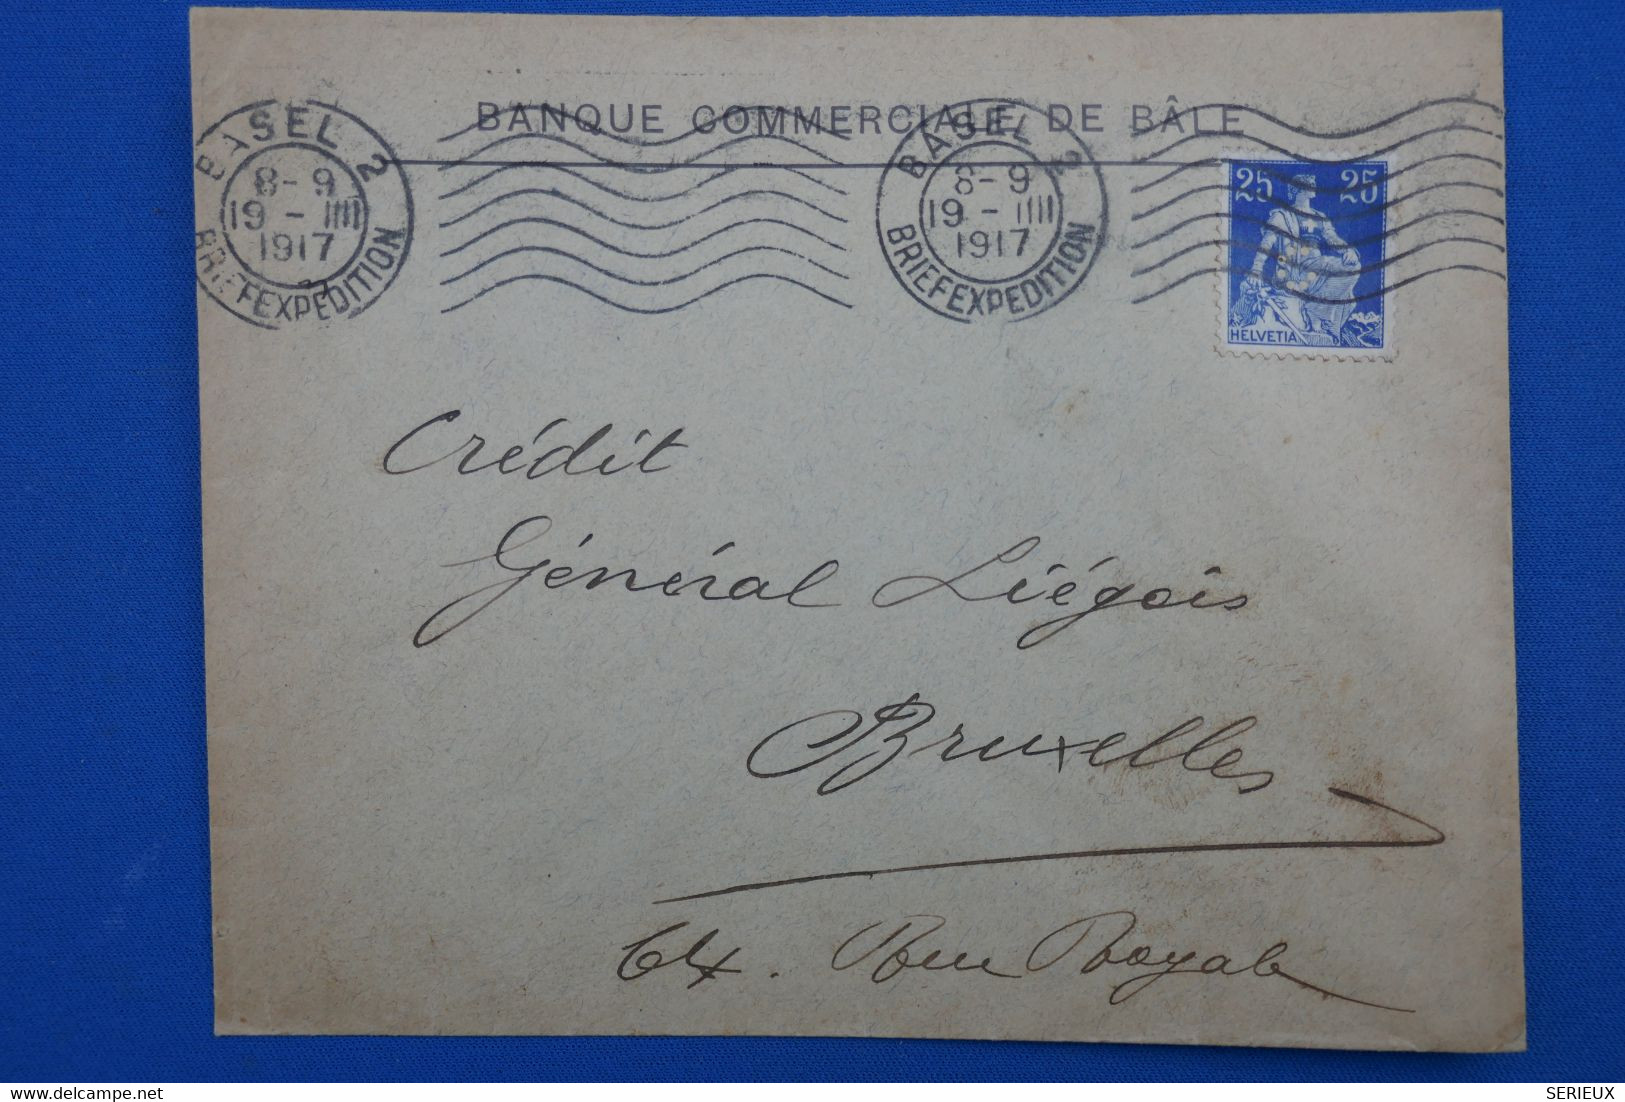 BANQUE COMMERCIALE DE BÂLE
BASEL 2
8-9
19-IIII
1917
BRIEFEXPEDITION
BASEL 2
8-9
19-IIII
1917
BRIEFEXPEDITION
25 25
HELVETIA
Crédit
Général Liégois
Bruxelles
64. Rue Royale
www.delcampe.net
SERIEUX